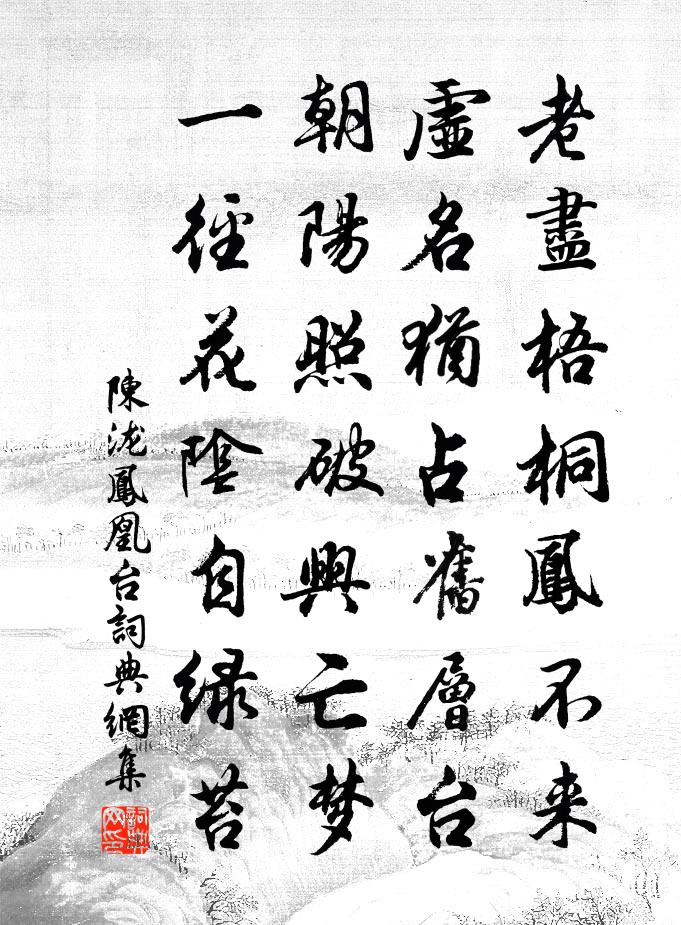 老盡梧桐鳳不来
虛名猶占舊層台
朝陽照破興亡梦
一徑花陰自绿苔
陳泷鳳凰台詞典網集